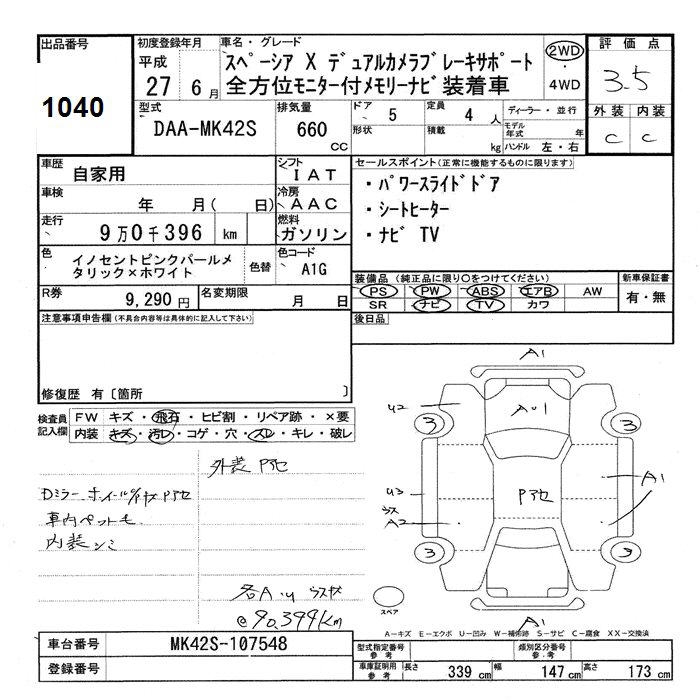 出品番号
1040
初度登録年月
平成
27 6月
車名・グレード
スペーシア X デュアルカメラブレーキサポート
全方位モニター付メモリーナビ装着車
2WD
・
4WD
評価点
3.5
外装 内装
C C
型式
DAA-MK42S
排気量
660
CC
ドア 5
形状
定員 4 人
積載 kg
ディーラー・並行
モデル年式 年
ハンドル 左・右
車歴
自家用
シフト
IAT
車検
年 月( 日)
冷房
AAC
走行
9万0千396 km
燃料
ガソリン
色
イノセントピンクパールメ
タリック×ホワイト
色替
色コード
A1G
R券
9,290円
名変期限
月 日
セールスポイント(正常に機能するものに限ります)
・パワースライドドア
・シートヒーター
・ナビ TV
装備品(純正品に限り○をつけてください)
PS PW ABS エアB AW
SR ナビ TV カワ
新車保証書
有・無
後日品
注意事項申告欄(不具合内容等は具体的に記入して下さい)
修復歴 有〔箇所 〕
検査員
記入欄
FW キズ・飛石・ヒビ割・リペア跡・×要
内装 キズ・汚レ・コゲ・穴・スレ・キレ・破レ
外装 Pアセ
Dミラー ホイールパイプ Pアセ
車内ペット毛
内装シミ
各A・U
@90,399km
A1
A・U1
U2
3
3
U3
A2
Pアセ
A1
3
3
スペア
A1
A-キズ E-エクボ U-凹み W-補修跡 S-サビ C-腐食 XX-交換済
車台番号
MK42S-107548
登録番号
型式指定番号
参考
類別区分番号
参考
車庫証明用
参考
長さ 339 cm
幅 147 cm
高さ 173 cm